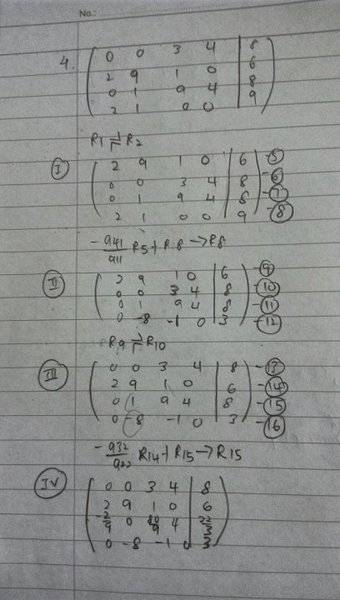 No.:
4. 0 0 3 4 | 8
2 9 1 0 | 6
0 1 9 4 | 8
2 1 0 0 | 9
R1 ⇌ R2
I 2 9 1 0 | 6 - 5
0 0 3 4 | 8 - 6
0 1 9 4 | 8 - 7
2 1 0 0 | 9 - 8
-a41/a11 R5 + R8 → R8
II 2 9 1 0 | 6 - 9
0 0 3 4 | 8 - 10
0 1 9 4 | 8 - 11
0 -8 -1 0 | 3 - 12
R9 ⇌ R10
III 0 0 3 4 | 8 - 13
2 9 1 0 | 6 - 14
0 1 9 4 | 8 - 15
0 -8 -1 0 | 3 - 16
-a32/a22 R14 + R15 → R15
IV 0 0 3 4 | 8
2 9 1 0 | 6
-2/9 0 80/9 4 | 22/3
0 -8 -1 0 | 3